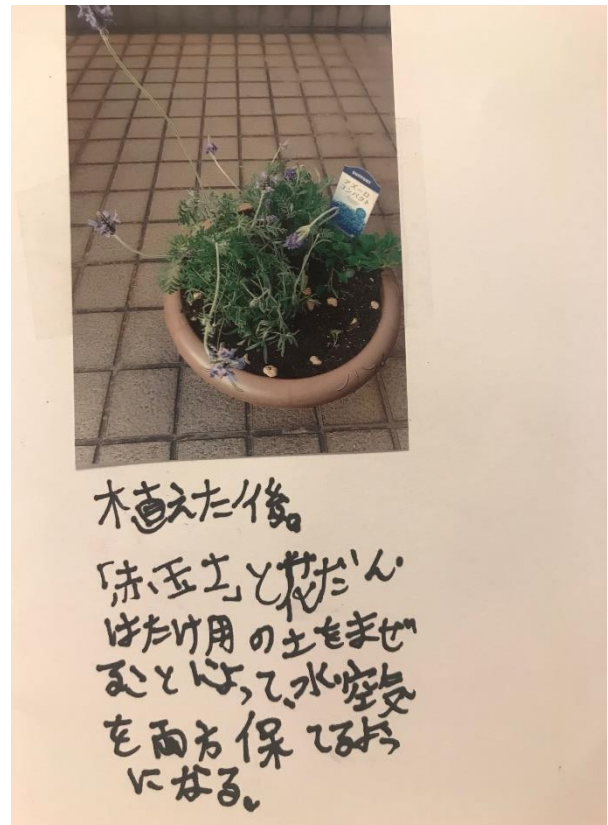 アズーロ
コンパクト
植えた後。
「赤玉土」と花だん・
はたけ用の土をまぜ
ることによって、水・空気
を両方保てるよう
になる。